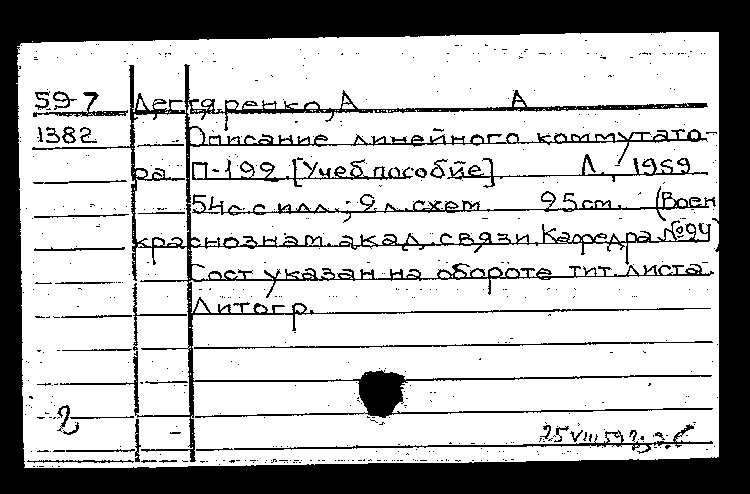 59-7 Дегтяренко, А А
1382 Описание линейного коммутато-
ра П-192. [Учеб пособие]. Л., 1959
54с. с илл.; 2 л. схем 25см. (Воен
краснознам. акад. связи. Кафедра №24)
Сост указан на обороте тит. листа.
Литогр.
2
25 VIII 59